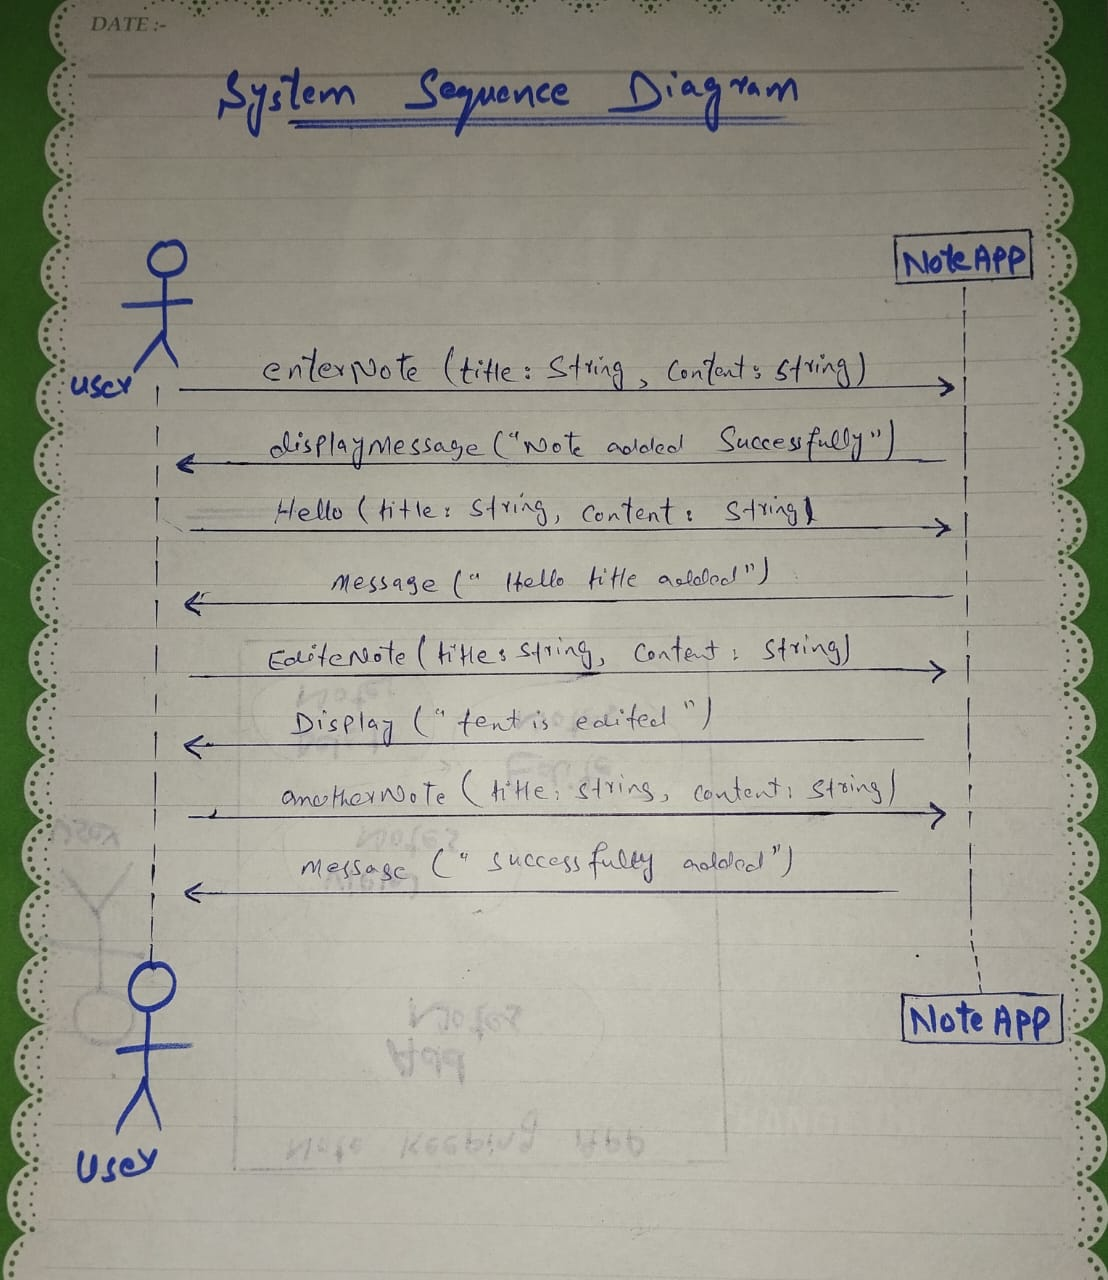 DATE :-
System Sequence Diagram
Note APP
user
enterNote (title: String, Content: String)
displayMessage ("Note added Successfully")
Hello (title: String, Content: String)
Message ("Hello title added")
EditeNote (title: String, Content: String)
Display ("tent is edited")
anotherNote (title: String, content: String)
Message ("successfully added")
Note APP
User